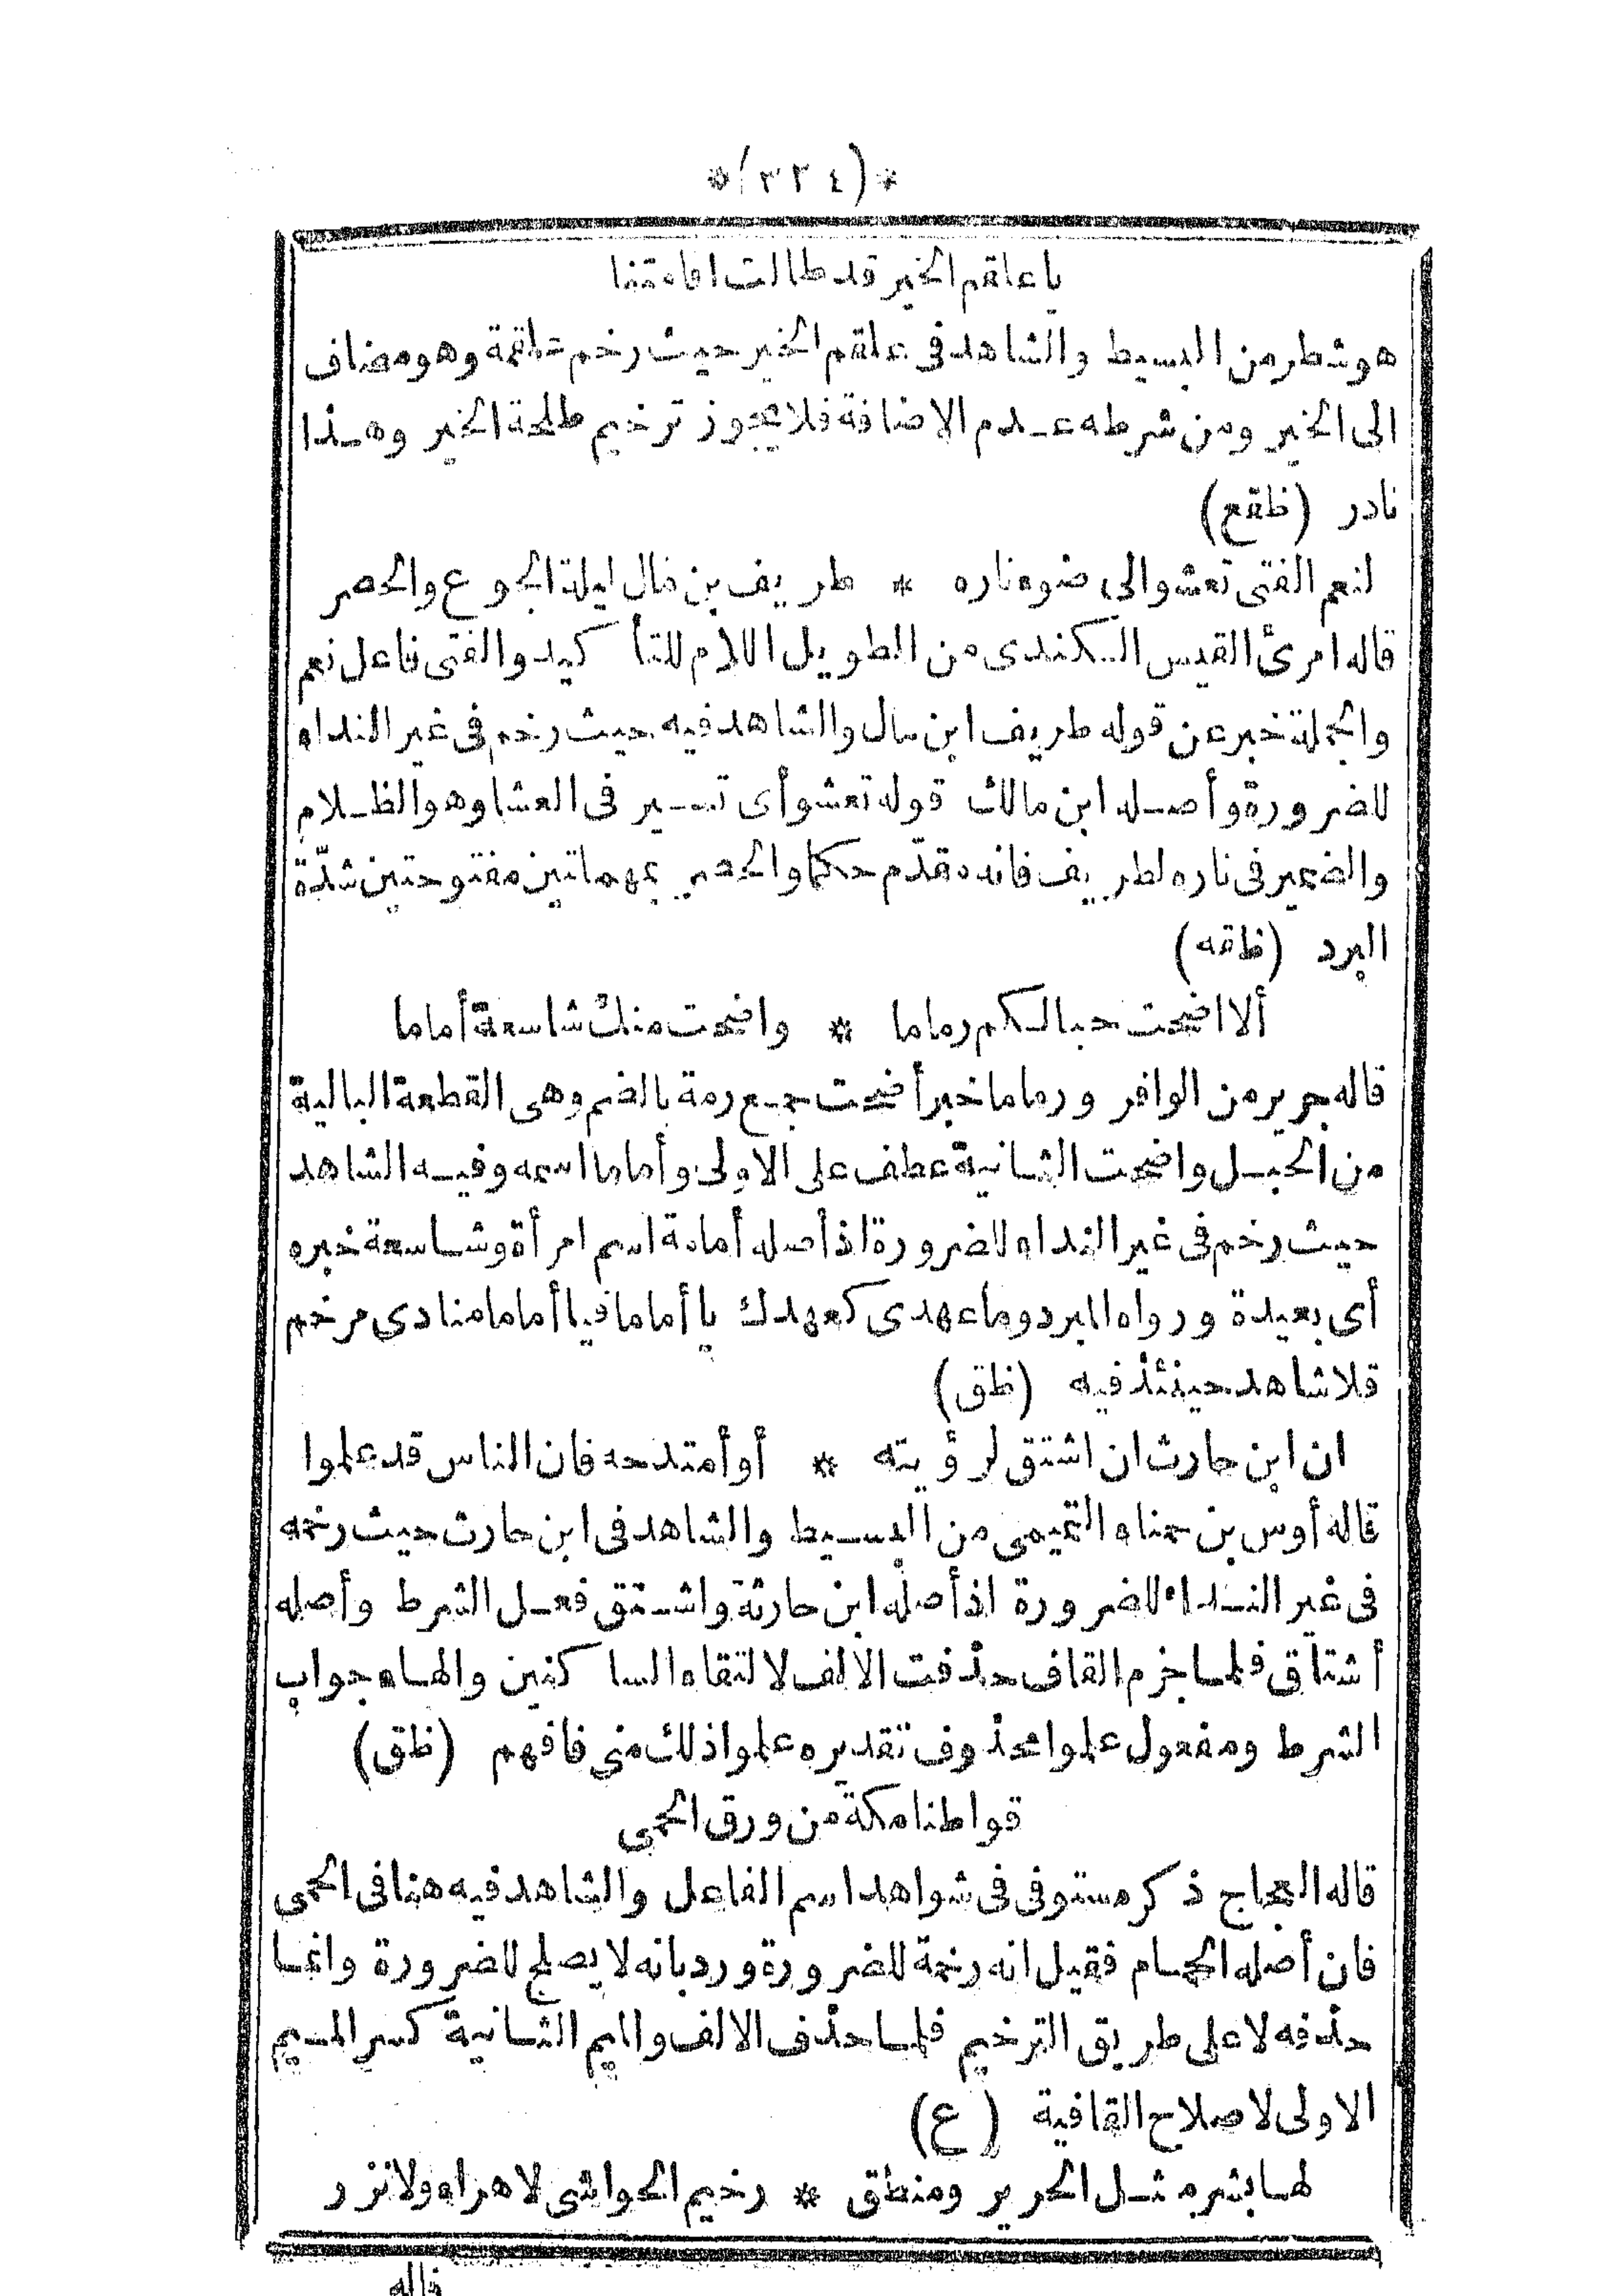 *(٣٢٤)*
يا علقم الخير قد طالت اقامتنا
هو شطر من البسيط والشاهد فى علقم الخير حيث رخم علقمة وهو مضاف
الى الخير ومن شرطه عدم الاضافة فلا يجوز ترخيم طلحة الخير وهذا
نادر (ظقع)
لنعم الفتى تعشو الى ضوء ناره * طريف بن مال ليلة الجوع والخصر
قاله امرئ القيس الكندى من الطويل اللام للتأكيد والفتى فاعل نعم
والجملة خبر عن قوله طريف ابن مال والشاهد فيه حيث رخم فى غير النداء
للضرورة وأصله ابن مالك قوله تعشو أى تسير فى العشا وهو الظلام
والضمير فى ناره لطريف فانه مقدّم حكما والحصر بمهملتين مفتوحتين شدّة
البرد (ظقه)
ألا اضحت حبالكم رماما * واضحت منك شاسعة أماما
قاله جرير من الوافر ورماما خبر أضحت جمع رمة بالضم وهى القطعة البالية
من الحبل واضحت الثانية عطف على الاولى وأماما اسمه وفيه الشاهد
حيث رخم فى غير النداء للضرورة اذ أصله أمامة اسم امرأة وشاسعة خبره
أى بعيدة ورواه المبرد وما عهدى كعهدك يا أماما فيا أماما منادى مرخم
فلا شاهد حينئذ فيه (ظق)
ان ابن حارث ان اشتق لرؤيته * أو أمتدحه فان الناس قد علموا
قاله أوس بن حمناء التميمى من البسيط والشاهد فى ابن حارث حيث رخمه
فى غير النداء للضرورة اذ أصله ابن حارثة واشتق فعل الشرط وأصله
أشتاق فلما جزم القاف حذفت الالف لالتقاء الساكنين والهاء جواب
الشرط ومفعول علموا محذوف تقديره علموا ذلك منى فافهم (ظق)
قواطنا مكة من ورق الحمى
قاله العجاج ذكر مستوفى فى شواهد اسم الفاعل والشاهد فيه هنا فى الحمى
فان أصله الحمام فقيل انه رخمة للضرورة ورد بانه لا يصلح للضرورة وانما
حذفه لا على طريق الترخيم فلما حذف الالف والميم الثانية كسر الميم
الاولى لاصلاح القافية (ع)
لها بشر مثل الحرير ومنطق * رخيم الحواشى لا هراء ولا نزر
قاله